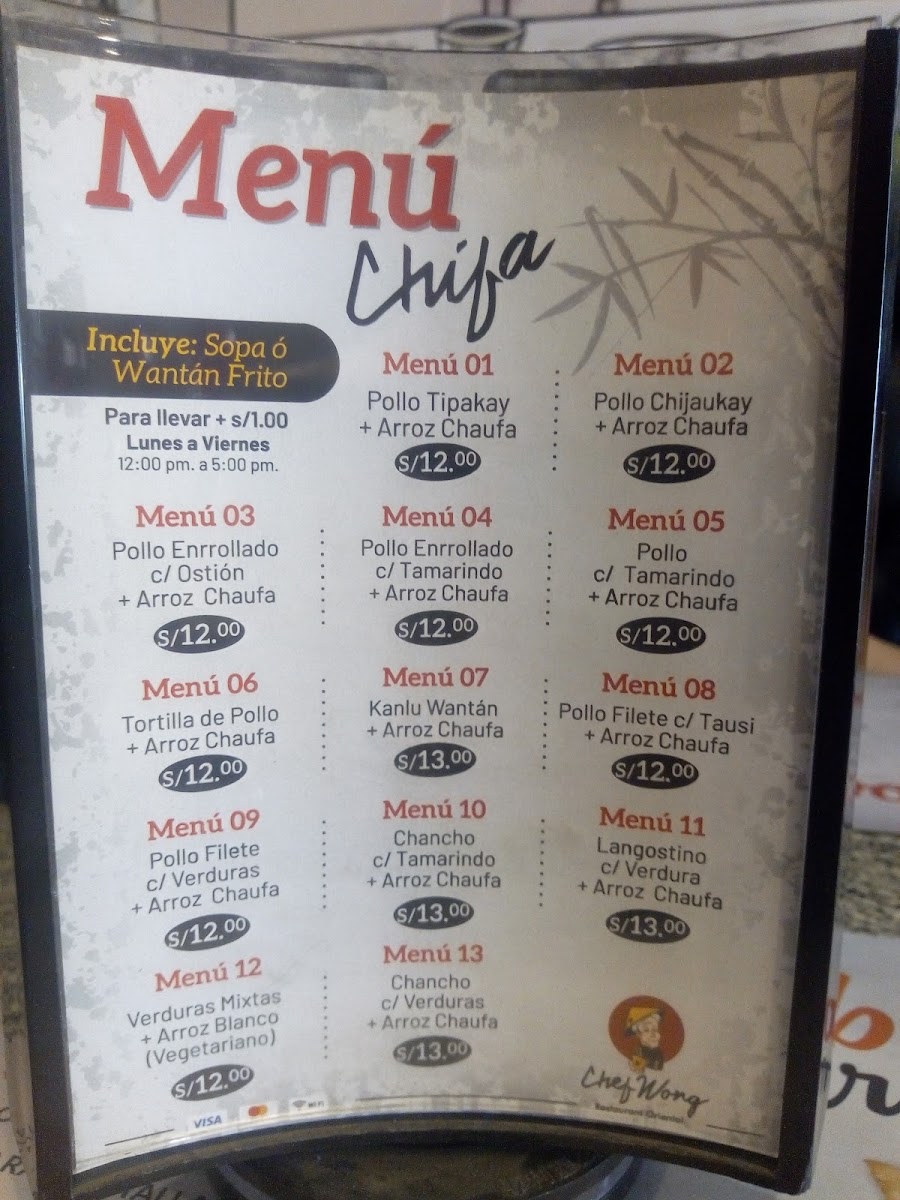 Menú
Chifa
Incluye: Sopa ó
Wantán Frito
Para llevar + s/1.00
Lunes a Viernes
12:00 pm. a 5:00 pm.
Menú 01
Pollo Tipakay
+ Arroz Chaufa
S/12.00
Menú 02
Pollo Chijaukay
+ Arroz Chaufa
S/12.00
Menú 03
Pollo Enrrollado
c/ Ostión
+ Arroz Chaufa
S/12.00
Menú 04
Pollo Enrrollado
c/ Tamarindo
+ Arroz Chaufa
S/12.00
Menú 05
Pollo
c/ Tamarindo
+ Arroz Chaufa
S/12.00
Menú 06
Tortilla de Pollo
+ Arroz Chaufa
S/12.00
Menú 07
Kanlu Wantán
+ Arroz Chaufa
S/13.00
Menú 08
Pollo Filete c/ Tausi
+ Arroz Chaufa
S/12.00
Menú 09
Pollo Filete
c/ Verduras
+ Arroz Chaufa
S/12.00
Menú 10
Chancho
c/ Tamarindo
+ Arroz Chaufa
S/13.00
Menú 11
Langostino
c/ Verdura
+ Arroz Chaufa
S/13.00
Menú 12
Verduras Mixtas
+ Arroz Blanco
(Vegetariano)
S/12.00
Menú 13
Chancho
c/ Verduras
+ Arroz Chaufa
S/13.00
Chef Wong
Restaurant Oriental
VISA